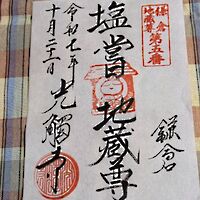 鎌倉
地蔵尊
第五番
鎌倉
塩嘗地蔵尊
光觸寺
令和七年
十月二十二日